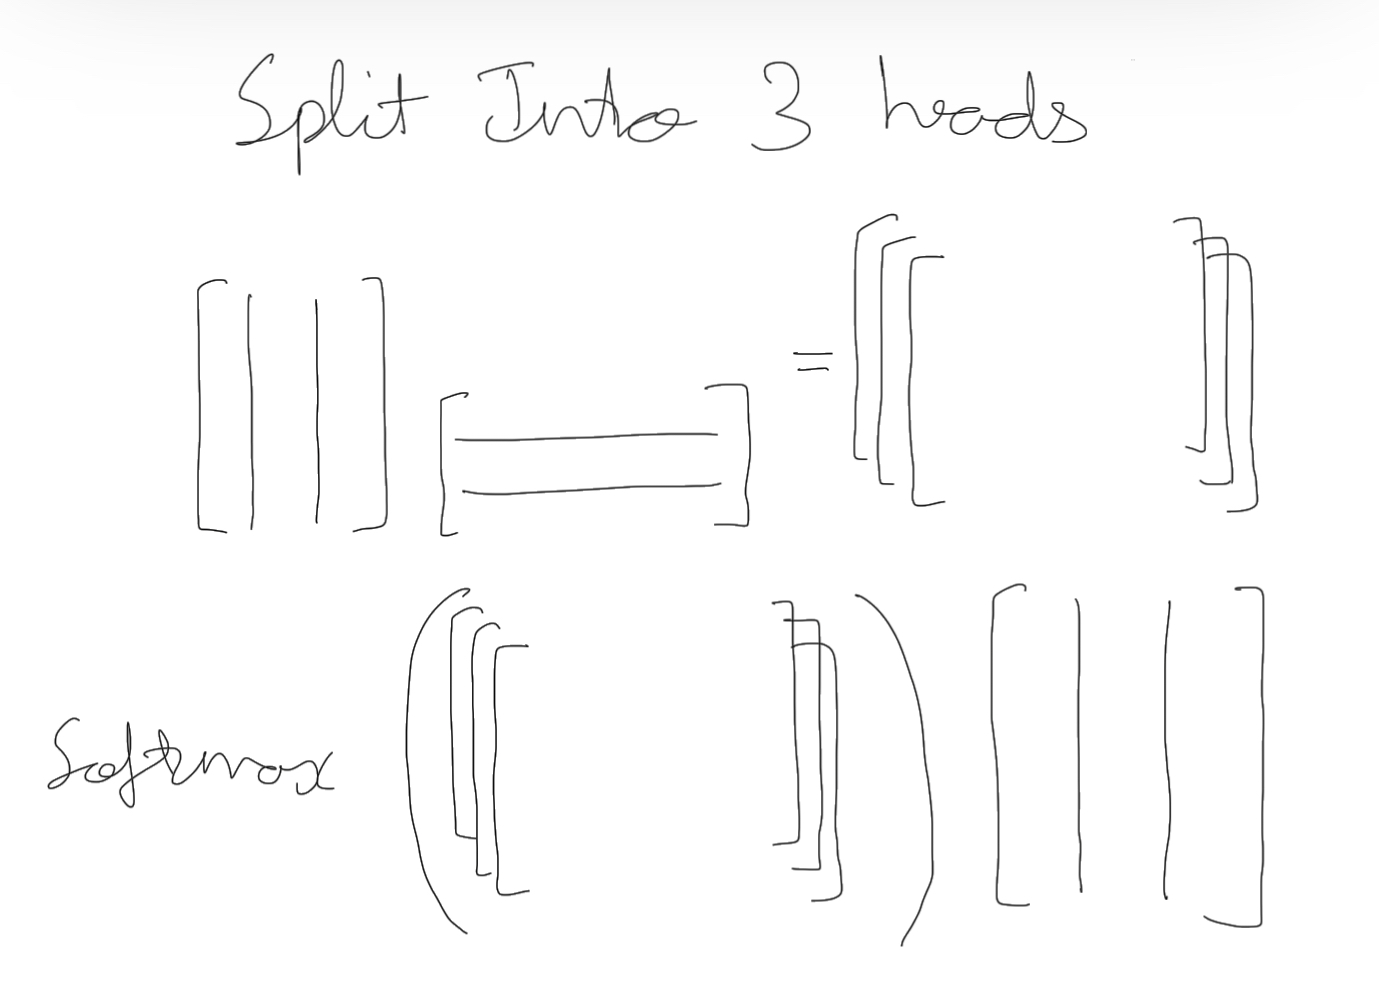 Split Into 3 heads
=
Softmax